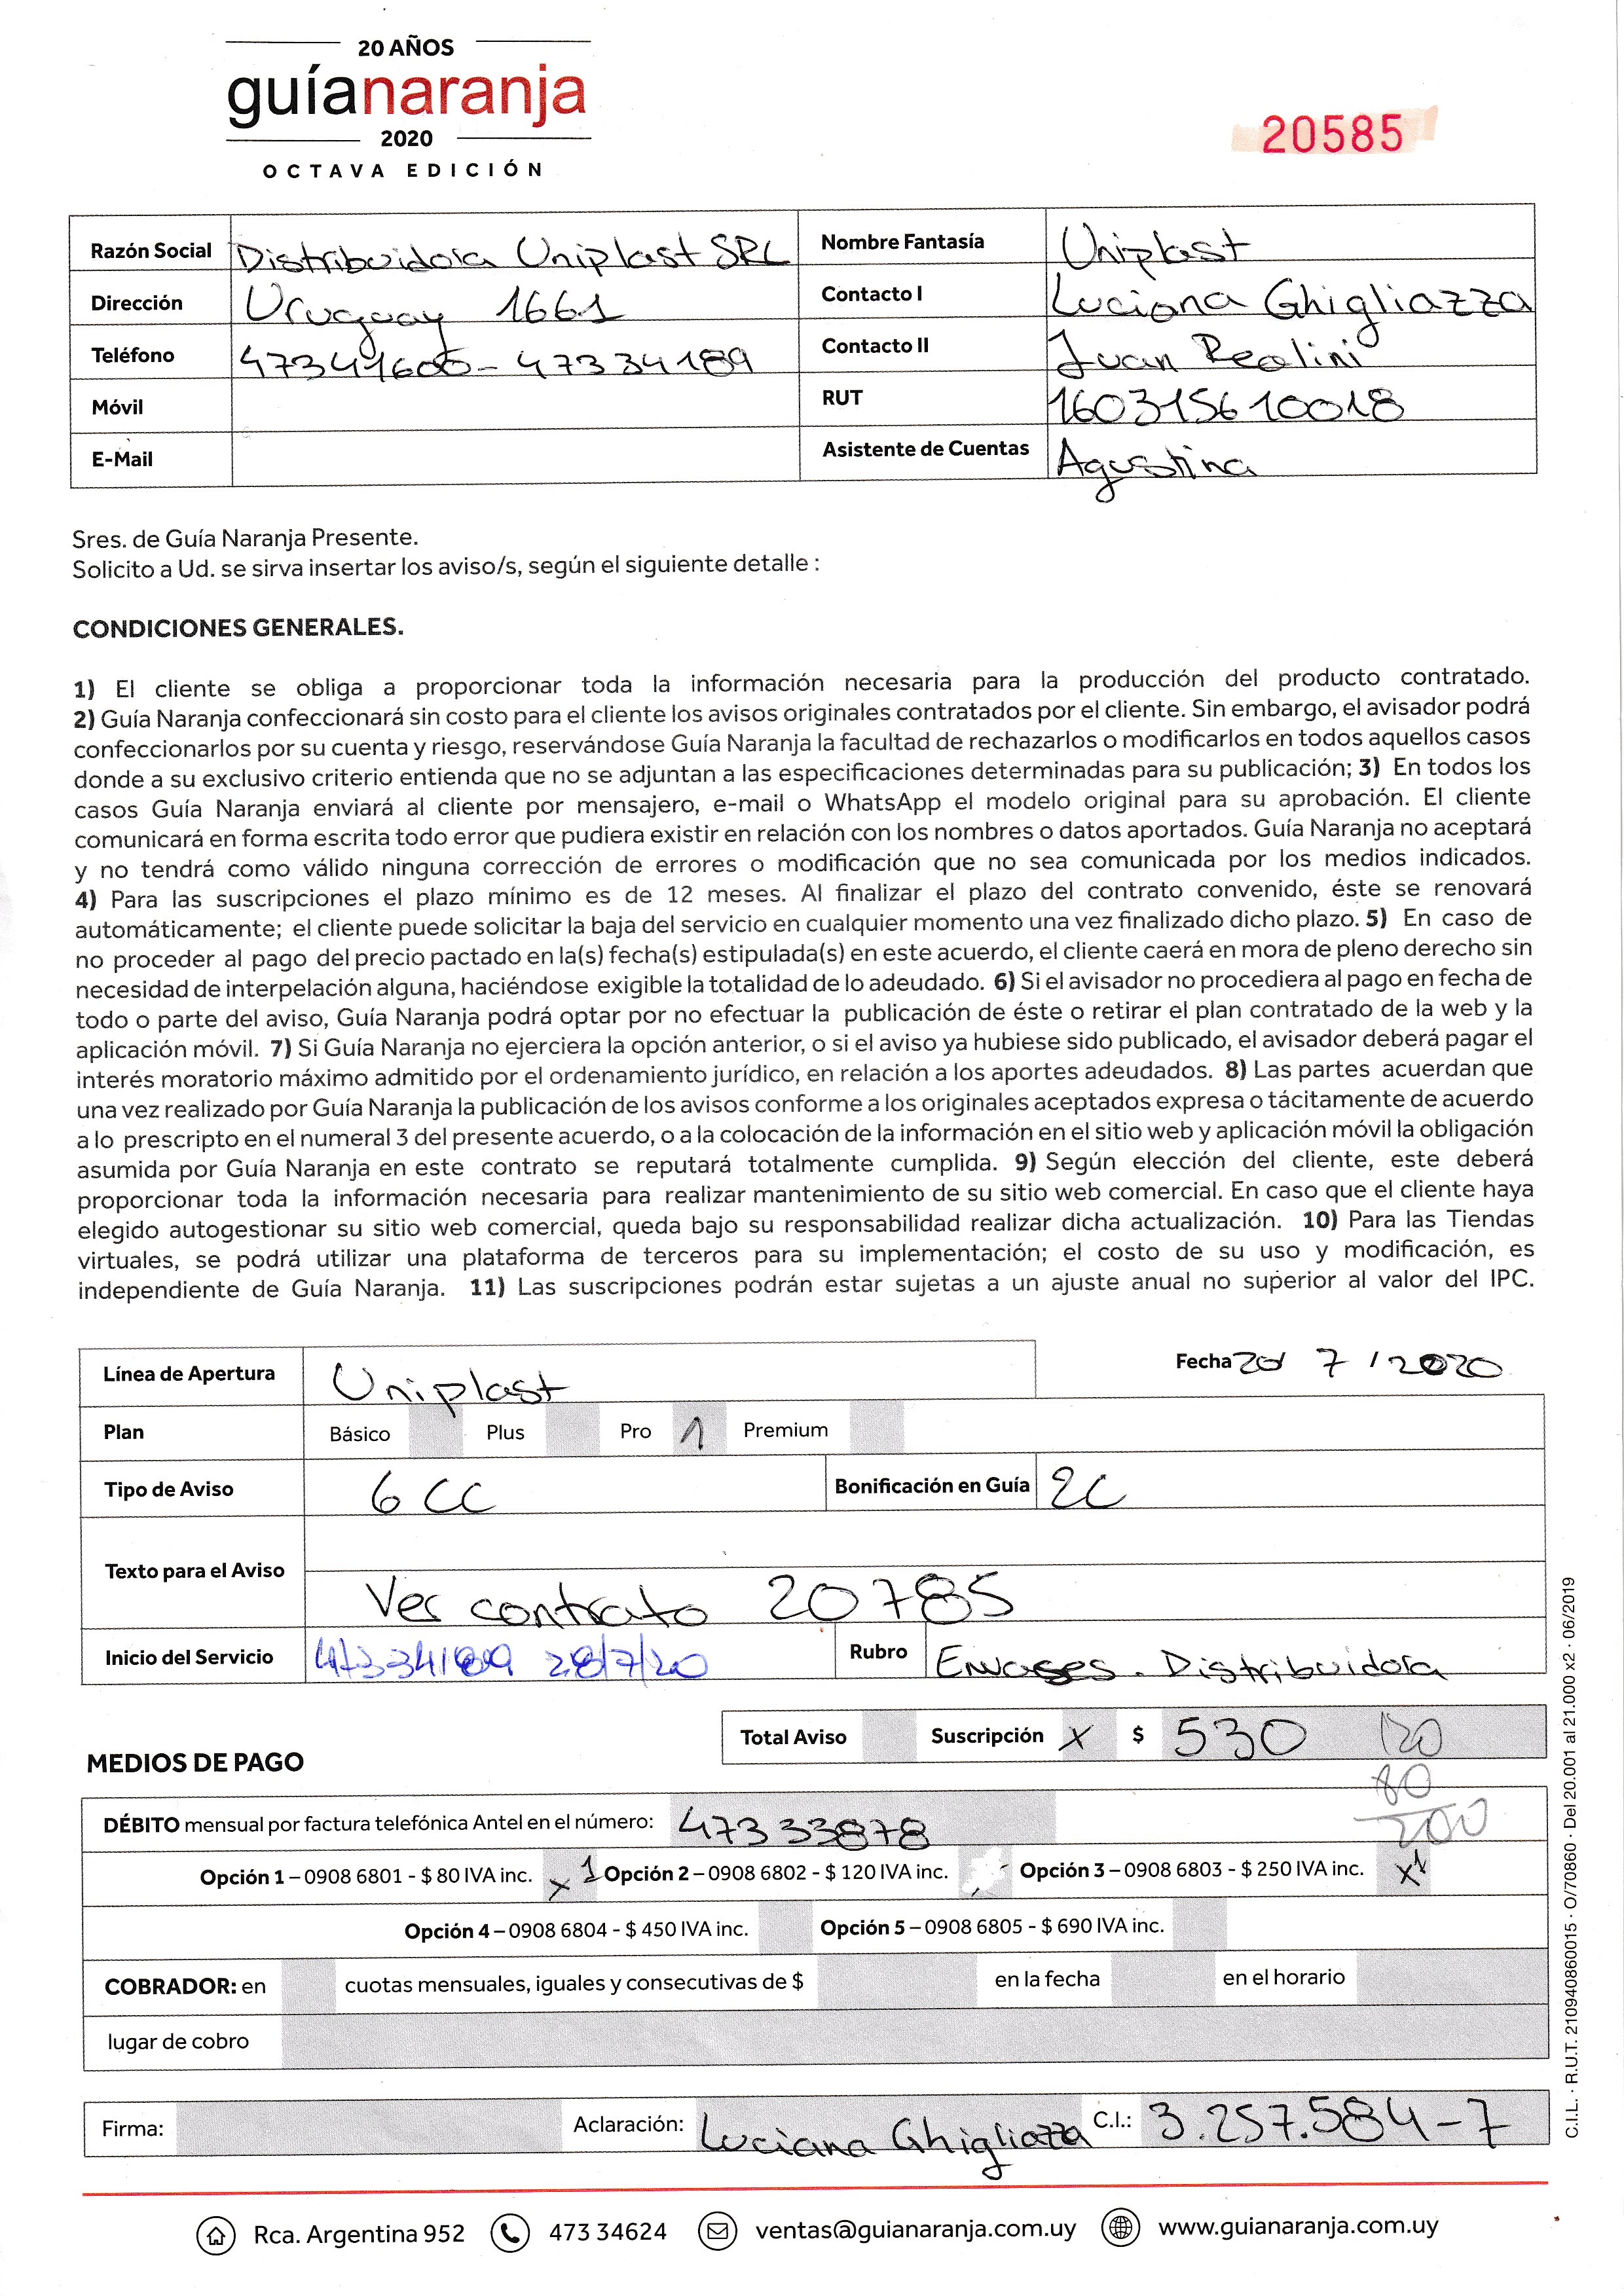 20 AÑOS
guíanaranja
2020
OCTAVA EDICIÓN
20585
Razón Social Distribuidora Uniplast SRL Nombre Fantasía Uniplast
Dirección Uruguay 1661 Contacto I Luciana Ghigliazza
Teléfono 47341600 - 47334189 Contacto II Juan Realini
Móvil RUT 160315610018
E-Mail Asistente de Cuentas Agustina
Sres. de Guía Naranja Presente.
Solicito a Ud. se sirva insertar los aviso/s, según el siguiente detalle :
CONDICIONES GENERALES.
1) El cliente se obliga a proporcionar toda la información necesaria para la producción del producto contratado.
2) Guía Naranja confeccionará sin costo para el cliente los avisos originales contratados por el cliente. Sin embargo, el avisador podrá
confeccionarlos por su cuenta y riesgo, reservándose Guía Naranja la facultad de rechazarlos o modificarlos en todos aquellos casos
donde a su exclusivo criterio entienda que no se adjuntan a las especificaciones determinadas para su publicación; 3) En todos los
casos Guía Naranja enviará al cliente por mensajero, e-mail o WhatsApp el modelo original para su aprobación. El cliente
comunicará en forma escrita todo error que pudiera existir en relación con los nombres o datos aportados. Guía Naranja no aceptará
y no tendrá como válido ninguna corrección de errores o modificación que no sea comunicada por los medios indicados.
4) Para las suscripciones el plazo mínimo es de 12 meses. Al finalizar el plazo del contrato convenido, éste se renovará
automáticamente; el cliente puede solicitar la baja del servicio en cualquier momento una vez finalizado dicho plazo. 5) En caso de
no proceder al pago del precio pactado en la(s) fecha(s) estipulada(s) en este acuerdo, el cliente caerá en mora de pleno derecho sin
necesidad de interpelación alguna, haciéndose exigible la totalidad de lo adeudado. 6) Si el avisador no procediera al pago en fecha de
todo o parte del aviso, Guía Naranja podrá optar por no efectuar la publicación de éste o retirar el plan contratado de la web y la
aplicación móvil. 7) Si Guía Naranja no ejerciera la opción anterior, o si el aviso ya hubiese sido publicado, el avisador deberá pagar el
interés moratorio máximo admitido por el ordenamiento jurídico, en relación a los aportes adeudados. 8) Las partes acuerdan que
una vez realizado por Guía Naranja la publicación de los avisos conforme a los originales aceptados expresa o tácitamente de acuerdo
a lo prescripto en el numeral 3 del presente acuerdo, o a la colocación de la información en el sitio web y aplicación móvil la obligación
asumida por Guía Naranja en este contrato se reputará totalmente cumplida. 9) Según elección del cliente, este deberá
proporcionar toda la información necesaria para realizar mantenimiento de su sitio web comercial. En caso que el cliente haya
elegido autogestionar su sitio web comercial, queda bajo su responsabilidad realizar dicha actualización. 10) Para las Tiendas
virtuales, se podrá utilizar una plataforma de terceros para su implementación; el costo de su uso y modificación, es
independiente de Guía Naranja. 11) Las suscripciones podrán estar sujetas a un ajuste anual no superior al valor del IPC.
Línea de Apertura Uniplast Fecha 20/ 7 / 2020
Plan Básico Plus Pro 1 Premium
Tipo de Aviso 6 CC Bonificación en Guía 2C
Texto para el Aviso
Ver contrato 20785
Inicio del Servicio 47334189 28/7/20 Rubro Envases. Distribuidora
Total Aviso Suscripción X $ 530 120
80
200
MEDIOS DE PAGO
DÉBITO mensual por factura telefónica Antel en el número: 47333878
Opción 1 – 0908 6801 - $ 80 IVA inc. x 1 Opción 2 – 0908 6802 - $ 120 IVA inc. Opción 3 – 0908 6803 - $ 250 IVA inc. x1
Opción 4 – 0908 6804 - $ 450 IVA inc. Opción 5 – 0908 6805 - $ 690 IVA inc.
COBRADOR: en cuotas mensuales, iguales y consecutivas de $ en la fecha en el horario
lugar de cobro
Firma: Aclaración: Luciana Ghigliazza C.I.: 3.257.584-7
Rca. Argentina 952 473 34624 ventas@guianaranja.com.uy www.guianaranja.com.uy
C.I.L. · R.U.T. 210940860015 · O/70860 · Del 20.001 al 21.000 x2 · 06/2019